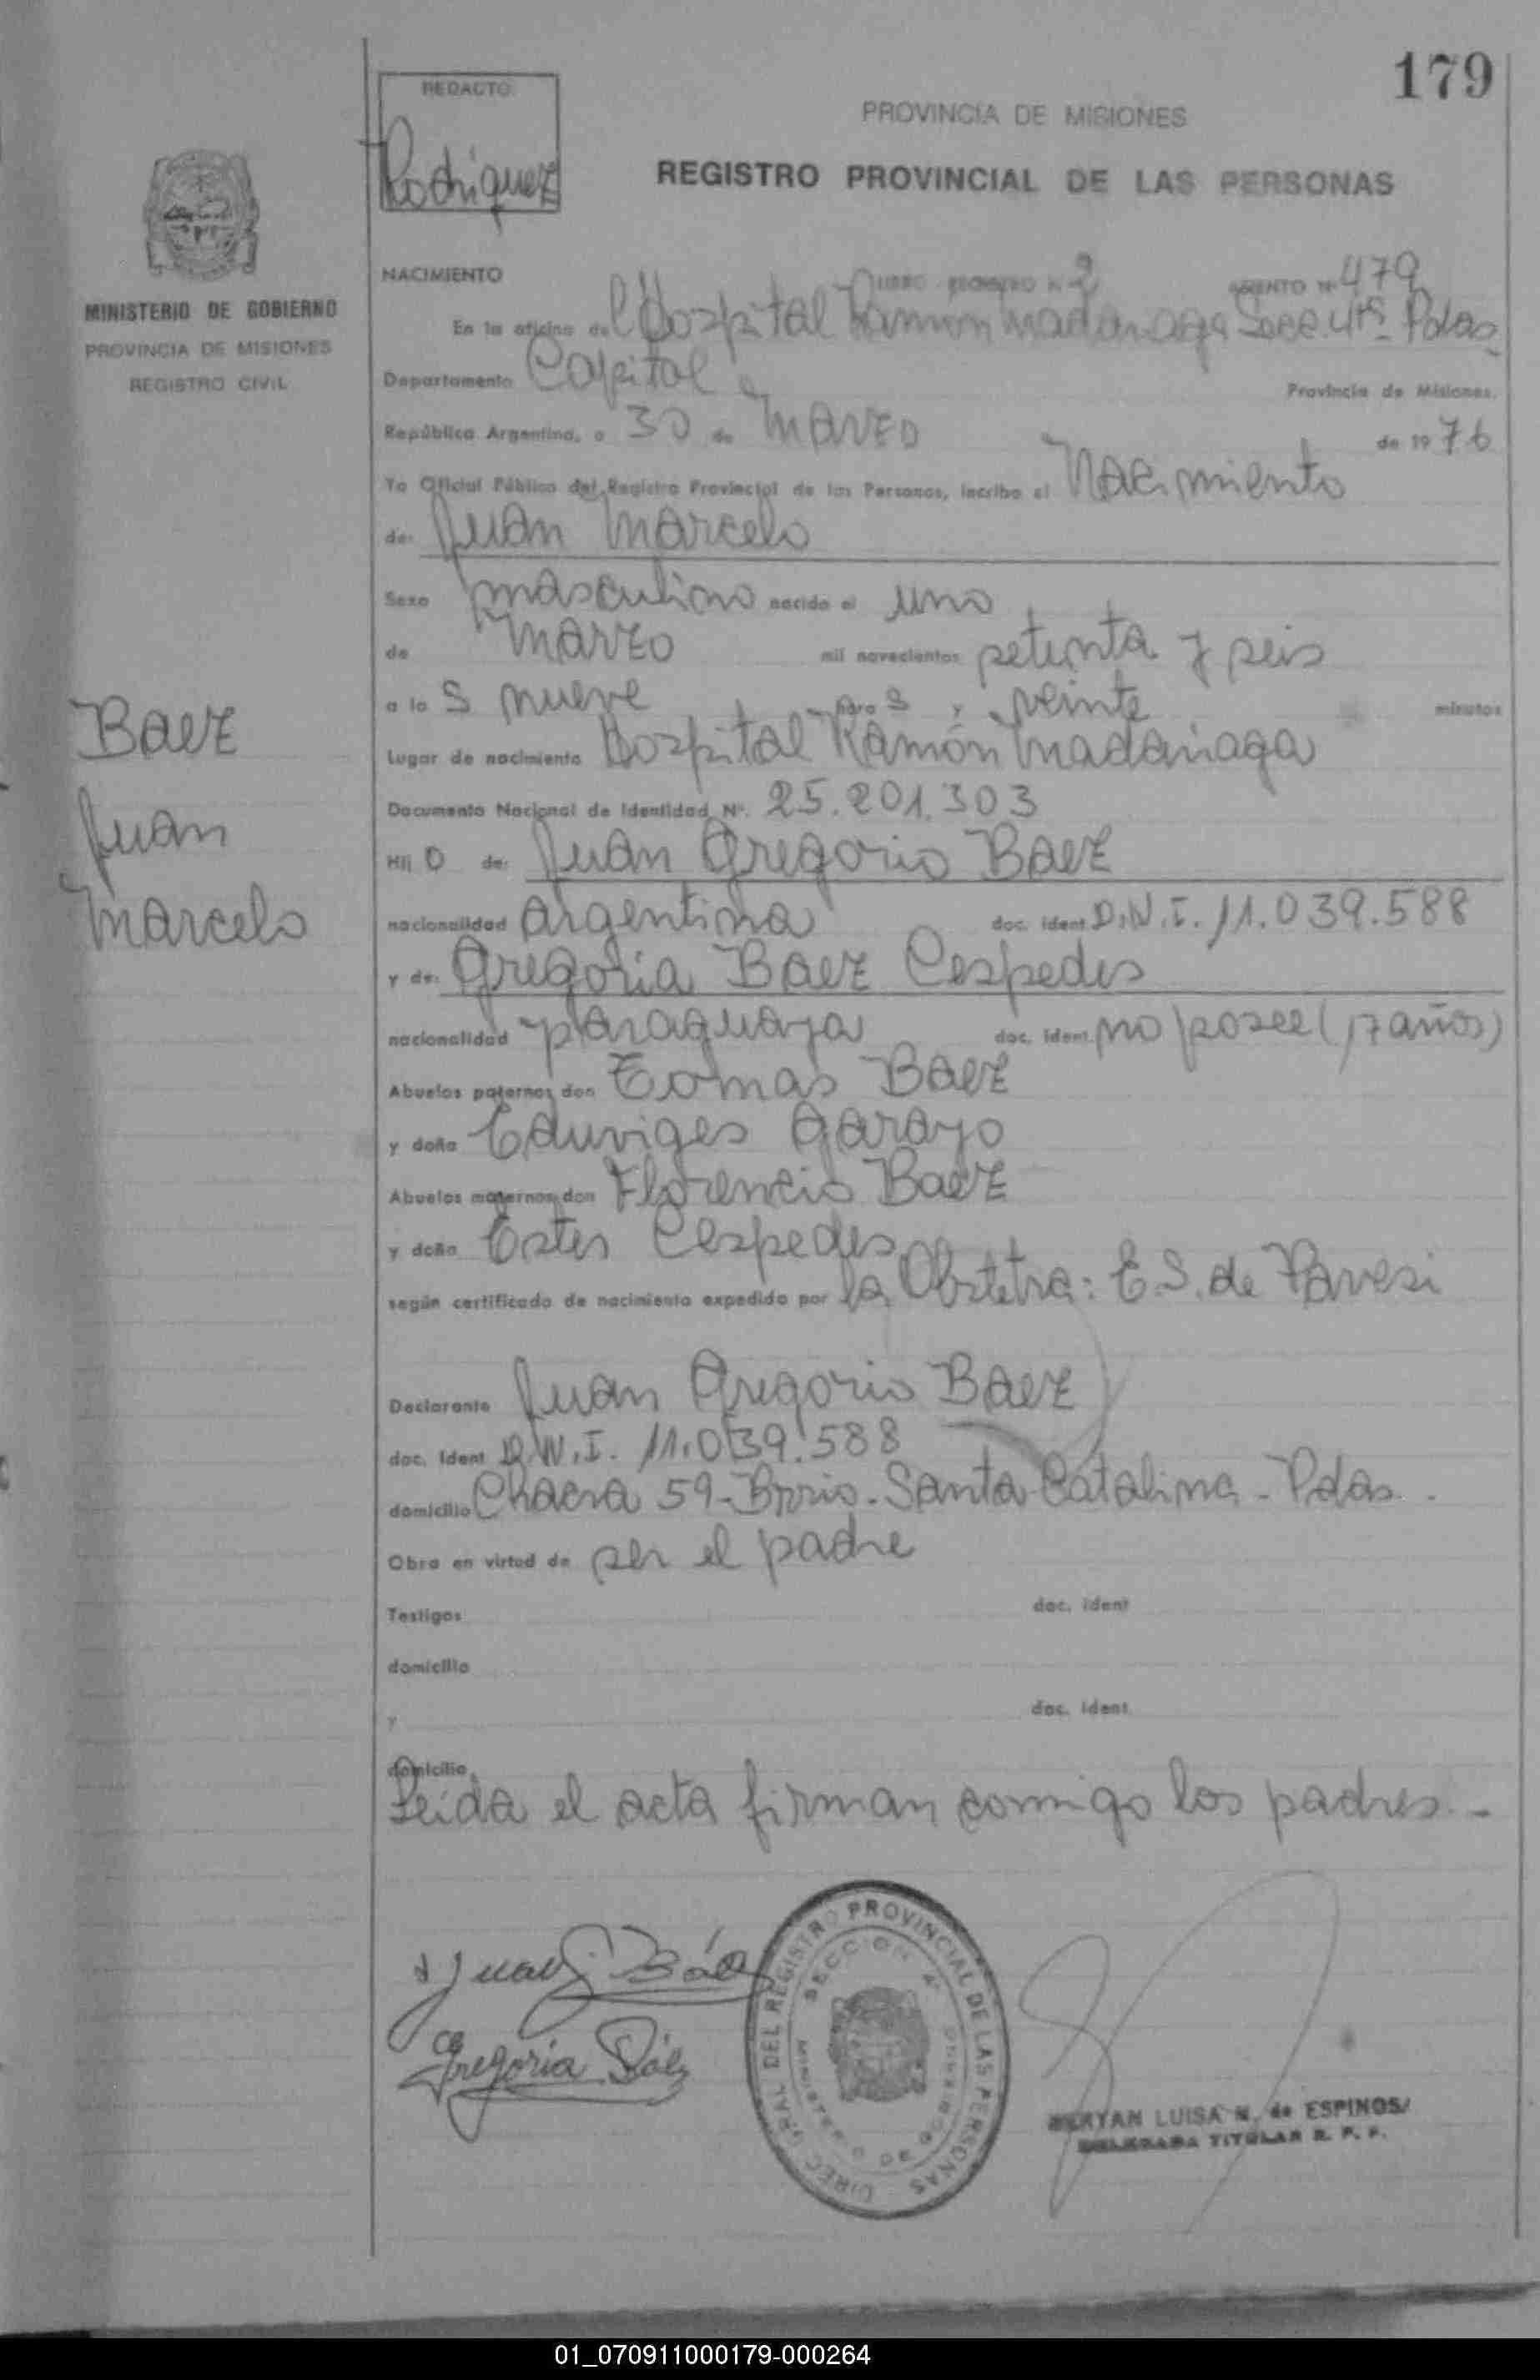 179
REDACTO
Rodriguez
PROVINCIA DE MISIONES
REGISTRO PROVINCIAL DE LAS PERSONAS
MINISTERIO DE GOBIERNO
PROVINCIA DE MISIONES
REGISTRO CIVIL
NACIMIENTO LIBRO REGISTRO Nº 2 ASIENTO Nº 479
En la oficina del Hospital Ramon Madariaga Secc. 4ta Pdas
Departamento Capital Provincia de Misiones.
República Argentina, a 30 de Marzo de 1976
Yo Oficial Público del Registro Provincial de las Personas, inscribo el Nacimiento
de: Juan Marcelo
Sexo masculino nacido el uno
de Marzo mil novecientos setenta y seis
a las nueve horas y veinte minutos
Lugar de nacimiento Hospital Ramón Madariaga
Documento Nacional de Identidad Nº. 25.201.303
Hijo de: Juan Gregorio Baez
nacionalidad argentina doc. ident. D.N.I. 11.039.588
y de: Gregoria Baez Cespedes
nacionalidad paraguaya doc. ident. no posee (17 años)
Abuelos paternos don Tomas Baez
y doña Eduviges Garayo
Abuelos maternos don Florencio Baez
y doña Ester Cespedes
según certificado de nacimiento expedido por la Obstetra: E.S. de Pavesi
Baez
Juan
Marcelo
Declarante Juan Gregorio Baez
doc. ident. D.N.I. 11.039.588
domicilio Chacra 59-Brrio-Santa Catalina-Pdas.
Obra en virtud de ser el padre
Testigos doc. ident
domicilio
y doc. ident.
domicilio
Leida el acta firman comigo los padres.-
Juan G. Báez
Gregoria Báez
DIREC. GRAL. DEL REGISTRO PROVINCIAL DE LAS PERSONAS
SECCION 4
MINISTERIO DE GOBIERNO
LUISA N. de ESPINOS
DELEGADA TITULAR R. P. P.
01_070911000179-000264